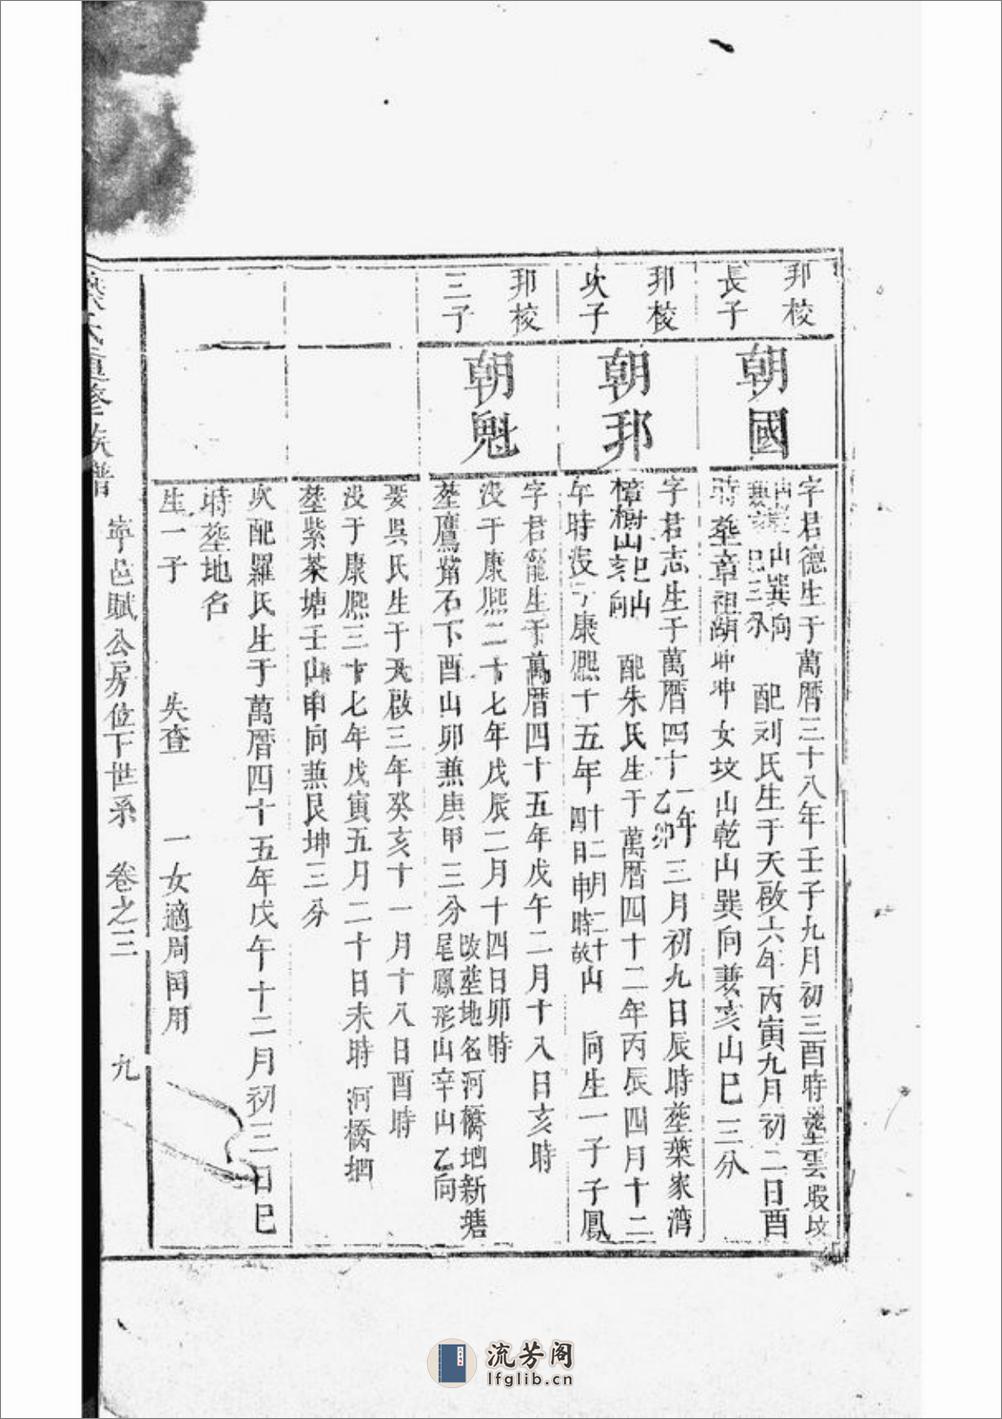 邦梭
長子
朝國
字君德生于萬曆三十八年壬子九月初三酉時塟雲㘭坟
山巽向
巳三分
配刘氏生于天啟六年丙寅九月初二日酉
時塟章祖湖坤冲女坟山乾山巽向兼亥山巳三分
邦梭
次子
朝邦
字君志生于萬曆四十一年乙卯三月初九日辰時塟葉家濟
樟樹山巳山亥向 配朱氏生于萬曆四十二年丙辰四月十二
午時没于康熙十五年十二月二十四日申時故山 同生一子子鳳
邦梭
三子
朝魁
字君寵生于萬曆四十五年戊午二月十八日亥時
没于康熙二十七年戊辰二月十四日卯時
塟鷹嘴石下酉山卯兼庚甲三分
改塟地名河橋垇新塘
尾鳳形山辛山乙向
娶吳氏生于天啟三年癸亥十一月十八日酉時
没于康熙三十七年戊寅五月二十日未時 河橋垇
塟紫茶塘壬山申向兼艮坤三分
次配羅氏生于萬曆四十五年戊午十二月初三日巳
時塟地名
生一子 失查 一女適周国用
氏重修族譜 寧邑賦公房位下世系 卷之三 九
流芳阁
lfglib.cn